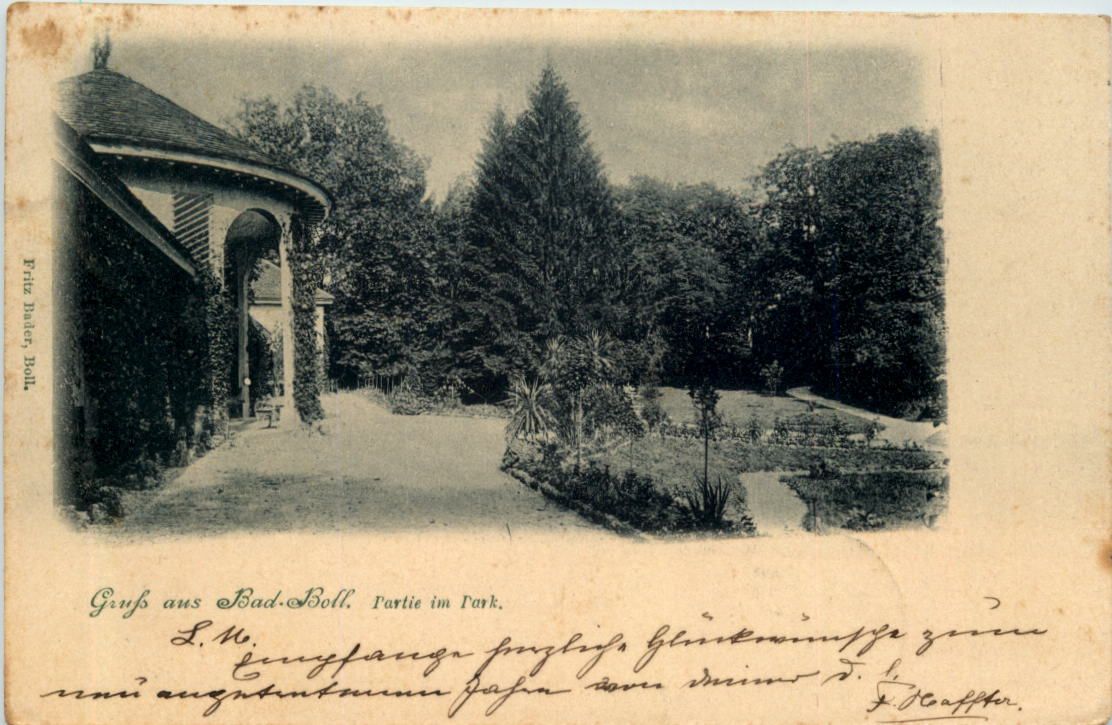 Fritz Bader, Boll.
Gruß aus Bad-Boll. Partie im Park.
L. M.
Empfange herzliche Glückwünsche zum
neu angetretenen Jahre von deiner d. l.
F. Haffter.